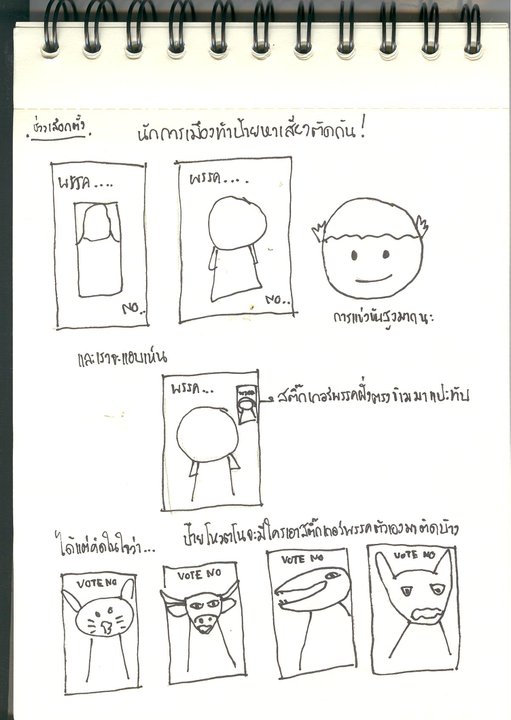 ช่วงเลือกตั้ง
นักการเมืองทำป้ายหาเสียงตัดกัน!
พรรค....
NO..
พรรค....
NO..
การแข่งขันสูงมากนะ
และเราจะแอบเห็น
พรรค...
พรรค
สติ๊กเกอร์พรรคฝั่งตรงข้ามมาแปะทับ
ได้แต่คิดในใจว่า...
ป้ายโหวตโนจะมีใครเอาสติ๊กเกอร์พรรคตัวเองมาติดบ้าง
VOTE NO
VOTE NO
VOTE NO
VOTE NO